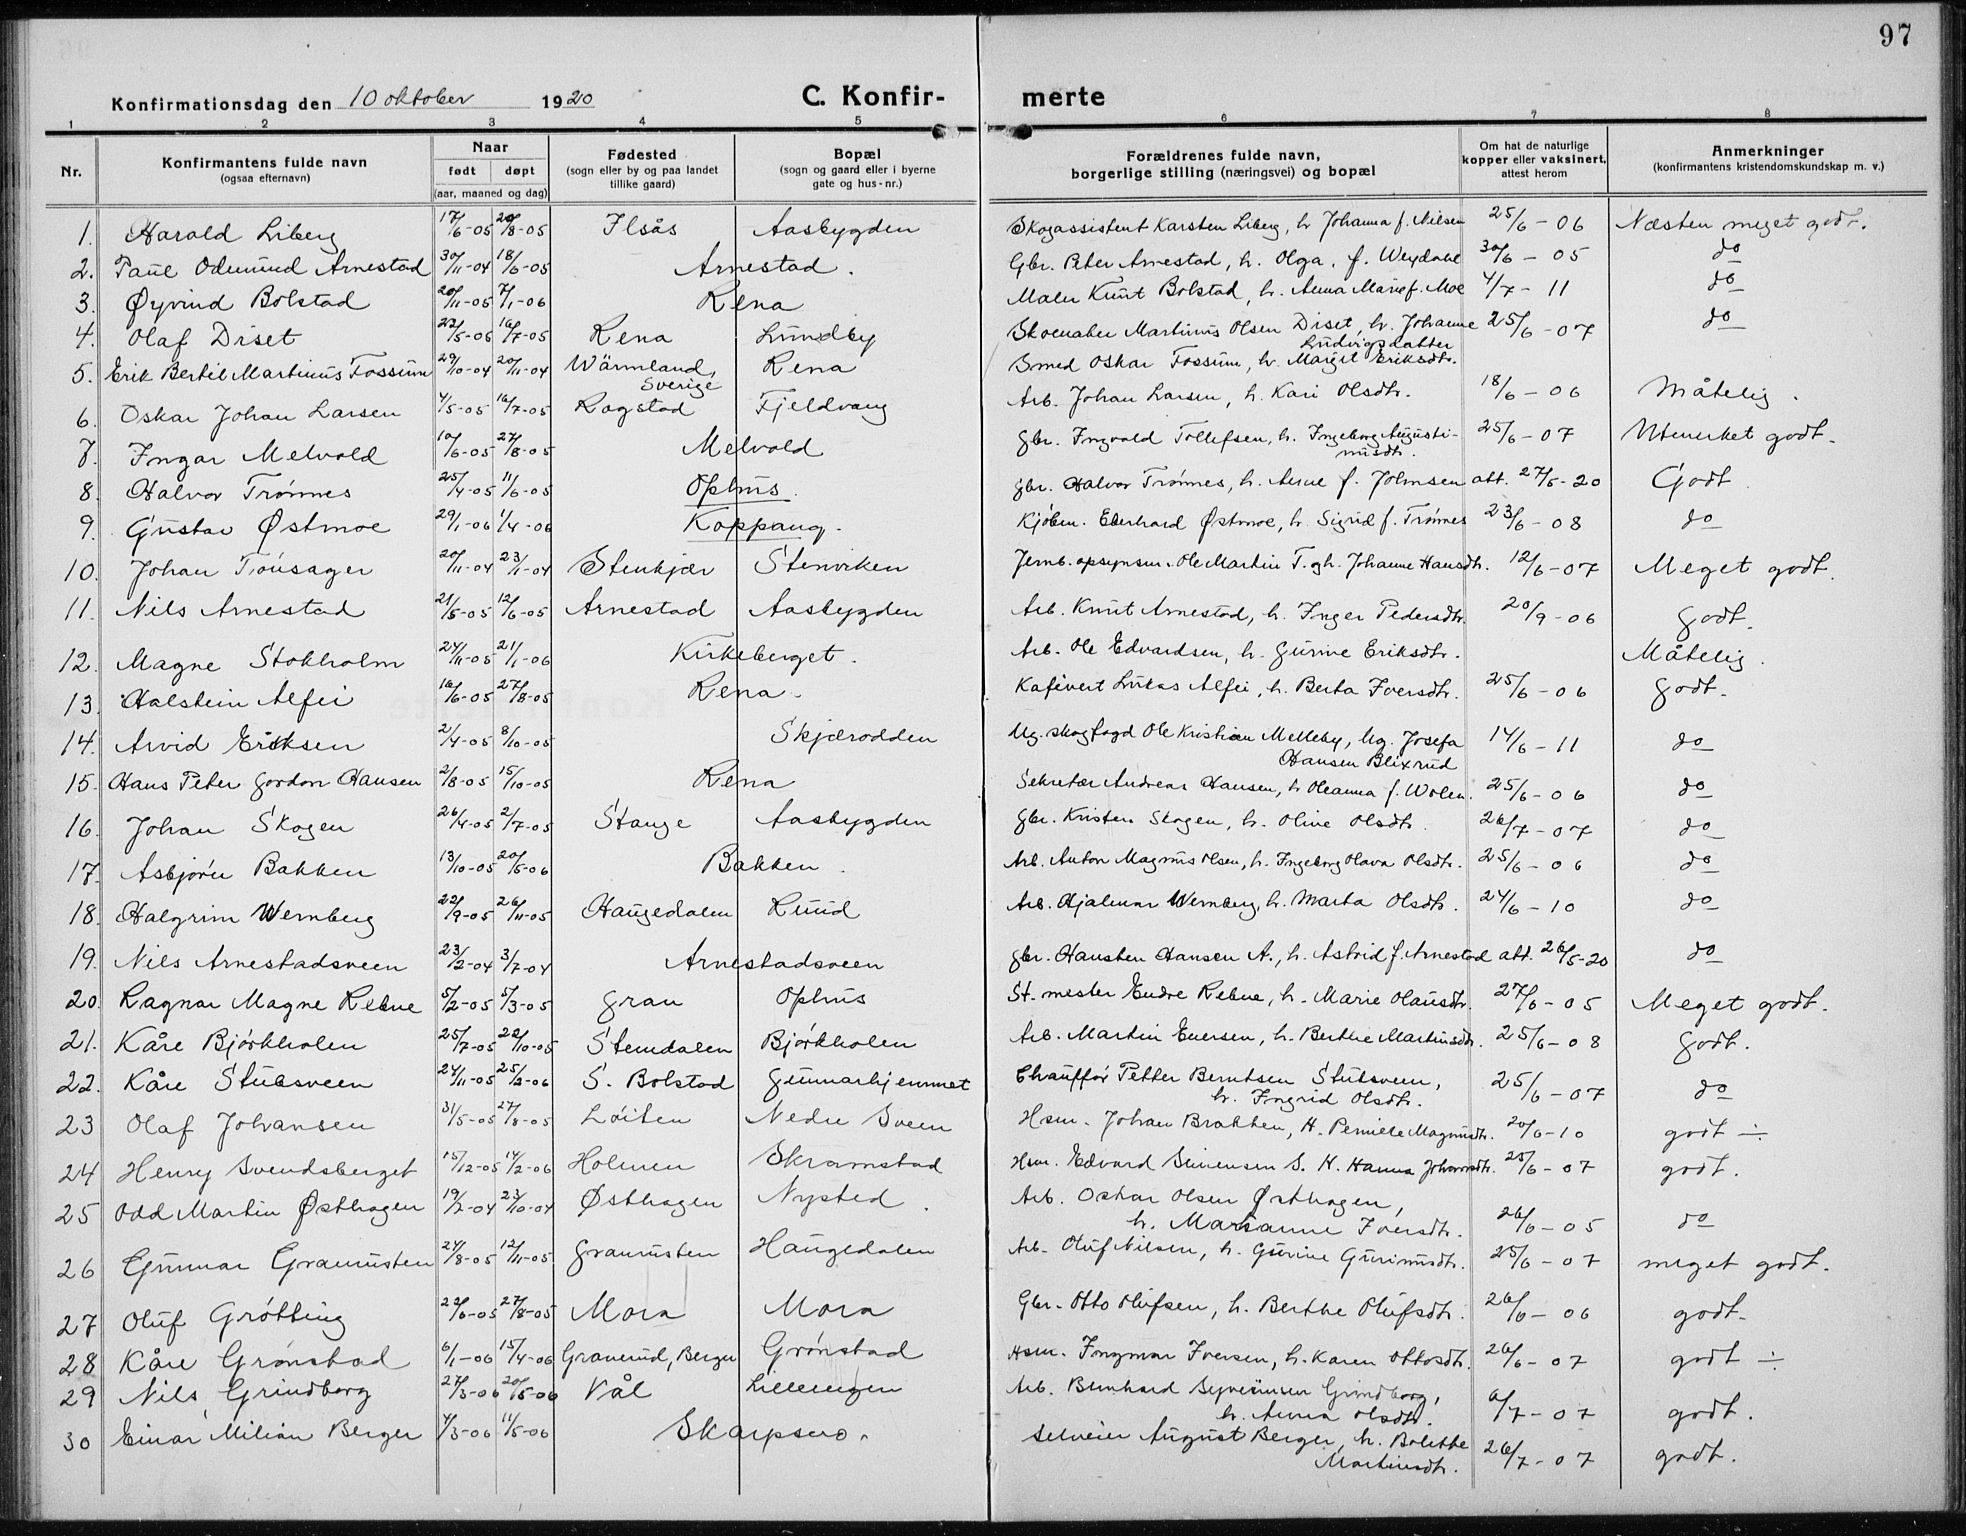 97
Konfirmationsdag den 10 oktober 1920
C. Konfir-
merte
1 2 3 4 5 6 7 8
Nr. | Konfirmantens fulde navn (ogsaa efternavn) | Naar født døpt (aar, maaned og dag) | Fødested (sogn eller by og paa landet tillike gaard) | Bopæl (sogn og gaard eller i byerne gate og hus-nr.) | Forældrenes fulde navn, borgerlige stilling (næringsvei) og bopæl | Om hat de naturlige kopper eller vaksinert, attest herom | Anmerkninger (konfirmantens kristendomskundskap m. v.)
1. Harald Liberg 17/6-05 20/8-05 Ilsås Aasbygden Skogassistent Karsten Liberg, h. Johanna f. Nilsen 25/6-06 Næsten meget godt.
2. Paul Odmund Arnestad 30/11-04 18/6-05 Arnestad. Gbr. Peter Arnestad, h. Olga, f. Weydahl 30/6-05 do
3. Øyvind Bolstad 20/11-05 7/1-06 Rena Maler Knut Bolstad, h. Anna Marie f. Moe 4/7-11 do
4. Olaf Diset 22/5-05 16/7-05 Rena Lundby Skomaker Martinus Olsen Diset, h. Johanne Ludvigsdatter 25/6-07 do
5. Erik Bertil Martinus Fossum 29/10-04 20/11-04 Wärmland, Sverige Rena Smed Oskar Fossum, h. Margit Eriksdtr.
6. Oskar Johan Larsen 4/5-05 16/7-05 Rogstad Fjeldvang Arb. Johan Larsen, h. Kari Olsdtr. 18/6-06 Måtelig.
7. Ingar Melvold 10/6-05 27/8-05 Melvold Gbr. Ingvald Tollefsen, h. Ingeborg Augustinusdtr. 25/6-07 Utmerket godt.
8. Halvor Trønnes 25/4-05 11/6-05 Ophus. Gbr. Halvor Trønnes, h. Anne f. Johnsen att. 27/5-20 Godt
9. Gustav Østmoe 29/1-06 1/4-06 Koppang. Kjøbm. Eberhard Østmoe, h. Sigrid f. Trønnes 23/6-08 do
10. Johan Tronsager 20/11-04 23/1-04 Stenkjær Stenviken Jernb.opsynsm. Ole Martin T. gh. Johanne Hansdtr. 12/6-07 Meget godt.
11. Nils Arnestad 21/5-05 12/6-05 Arnestad Aasbygden Arb. Knut Arnestad, h. Inger Pedersdtr. 20/9-06 godt.
12. Magne Stokholm 24/11-05 21/1-06 Kirkeberget. Arb. Ole Edvardsen, h. Gurine Eriksdtr. Måtelig.
13. Halstein Alfei 16/6-05 27/8-05 Rena. Kafévert Lukas Alfei, h. Berta Iversdtr. 25/6-06 godt.
14. Arvid Eriksen 2/4-05 8/10-05 Skjærodden Ug. skogfogd Ole Kristian Melleby, Ug. Josefa Hansen Blixrud 14/6-11 do
15. Hans Peter Gordon Hansen 2/8-05 15/10-05 Rena Sekretær Andreas Hansen, h. Oleanna f. Wolen. 25/6-06 do
16. Johan Skogen 26/4-05 2/7-05 Stange Aasbygden Gbr. Kristen Skogen, h. Oline Olsdtr. 26/7-07 do
17. Asbjørn Bakken 13/10-05 20/5-06 Bakken. Arb. Anton Magnus Olsen, h. Ingeborg Olava Olsdtr. 25/6-06 do
18. Halgrim Wernberg 22/9-05 26/11-05 Haugedalen Ruud Arb. Hjalmar Wernberg, h. Marta Olsdtr. 24/6-10 do
19. Nils Arnestadsveen 23/2-04 3/7-04 Arnestadsveen Gbr. Hansten Hansen A., h. Astrid f. Arnestad att. 26/5-20 do
20. Ragnar Magne Rebne 5/2-05 5/3-05 Gran Ophus St.mester Endre Rebne, h. Marie Olausdtr. 27/6-05 Meget godt.
21. Kåre Bjørkholen 25/7-05 22/10-05 Stemdalen Bjørkholen Arb. Martin Enersen, h. Berthe Martinsdtr. 25/6-08 Godt.
22. Kåre Stubsveen 24/11-05 25/2-06 S. Bolstad Gunnarhjemmet Chauffør Petter Berntsen Stubsveen, h. Ingrid Olsdtr. 25/6-07 do
23 Olaf Johansen 31/5-05 27/8-05 Løiten Nedre Sveen Hsm. Johan Brakken, H. Pernille Magnusdtr. 20/6-10 godt ÷
24 Henry Svendsberget 15/12-05 14/2-06 Holmen Skramstad Hsm. Edvard Simensen S. H. Hanna Johansdtr. 25/6-07 godt.
25 Odd Martin Østhagen 19/2-04 23/10-04 Østhagen Nysted. Arb. Oskar Olsen Østhagen, h. Marianne Iversdtr. 26/6-05 do
26 Gunnar Granrusten 24/8-05 12/11-05 Granrusten Haugedalen Arb. Oluf Nilsen, h. Gurine Gurinusdtr. 25/6-07 meget godt.
27 Oluf Grøtting 22/6-05 27/8-05 Mora Mora Gbr. Otto Olufsen, h. Berthe Olufsdtr. 26/6-06 godt.
28 Kåre Grønstad 6/1-06 15/4-06 Granerud, Berger Grønstad Hsm. Ingmar Iversen, h. Karen Ottosdtr. 26/6-07 godt ÷
29 Nils Grindborg 27/3-06 20/5-06 Vål Lillerengen Arb. Bernhard Syverinsen Grindborg, h. Anna Olsdtr. 6/7-07 godt.
30 Einar Milian Berger 4/3-06 11/5-06 Skarpsno. Selveier August Berger, h. Bolethe Martinusdtr. 26/7-07 godt.